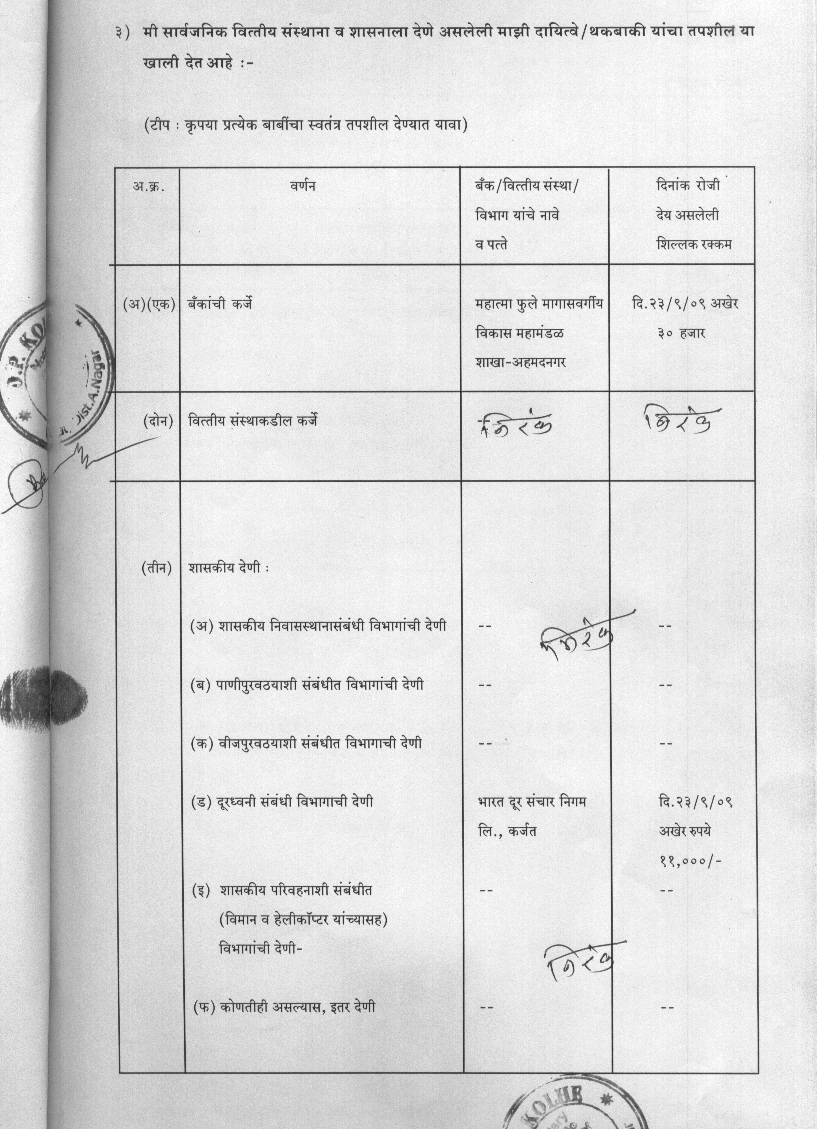 ३) मी सार्वजनिक वित्तीय संस्थाना व शासनाला देणे असलेली माझी दायित्वे/थकबाकी यांचा तपशील या
खाली देत आहे :-
(टीप : कृपया प्रत्येक बाबींचा स्वतंत्र तपशील देण्यात यावा)
अ.क्र. वर्णन बँक/वित्तीय संस्था/ दिनांक रोजी
विभाग यांचे नावे देय असलेली
व पत्ते शिल्लक रक्कम
(अ)(एक) बँकांची कर्जे महात्मा फुले मागासवर्गीय दि.२३/९/०९ अखेर
विकास महामंडळ ३० हजार
शाखा-अहमदनगर
O.P. KOL
Dist.A.Nagar
(दोन) वित्तीय संस्थाकडील कर्जे निरंक निरंक
(तीन) शासकीय देणी :
(अ) शासकीय निवासस्थानासंबंधी विभागांची देणी -- निरंक --
(ब) पाणीपुरवठयाशी संबंधीत विभागांची देणी -- --
(क) वीजपुरवठयाशी संबंधीत विभागाची देणी -- --
(ड) दूरध्वनी संबंधी विभागाची देणी भारत दूर संचार निगम दि.२३/९/०९
लि., कर्जत अखेर रुपये
११,०००/-
(इ) शासकीय परिवहनाशी संबंधीत -- --
(विमान व हेलीकॉप्टर यांच्यासह)
विभागांची देणी- निरंक
(फ) कोणतीही असल्यास, इतर देणी -- --
KOLHE